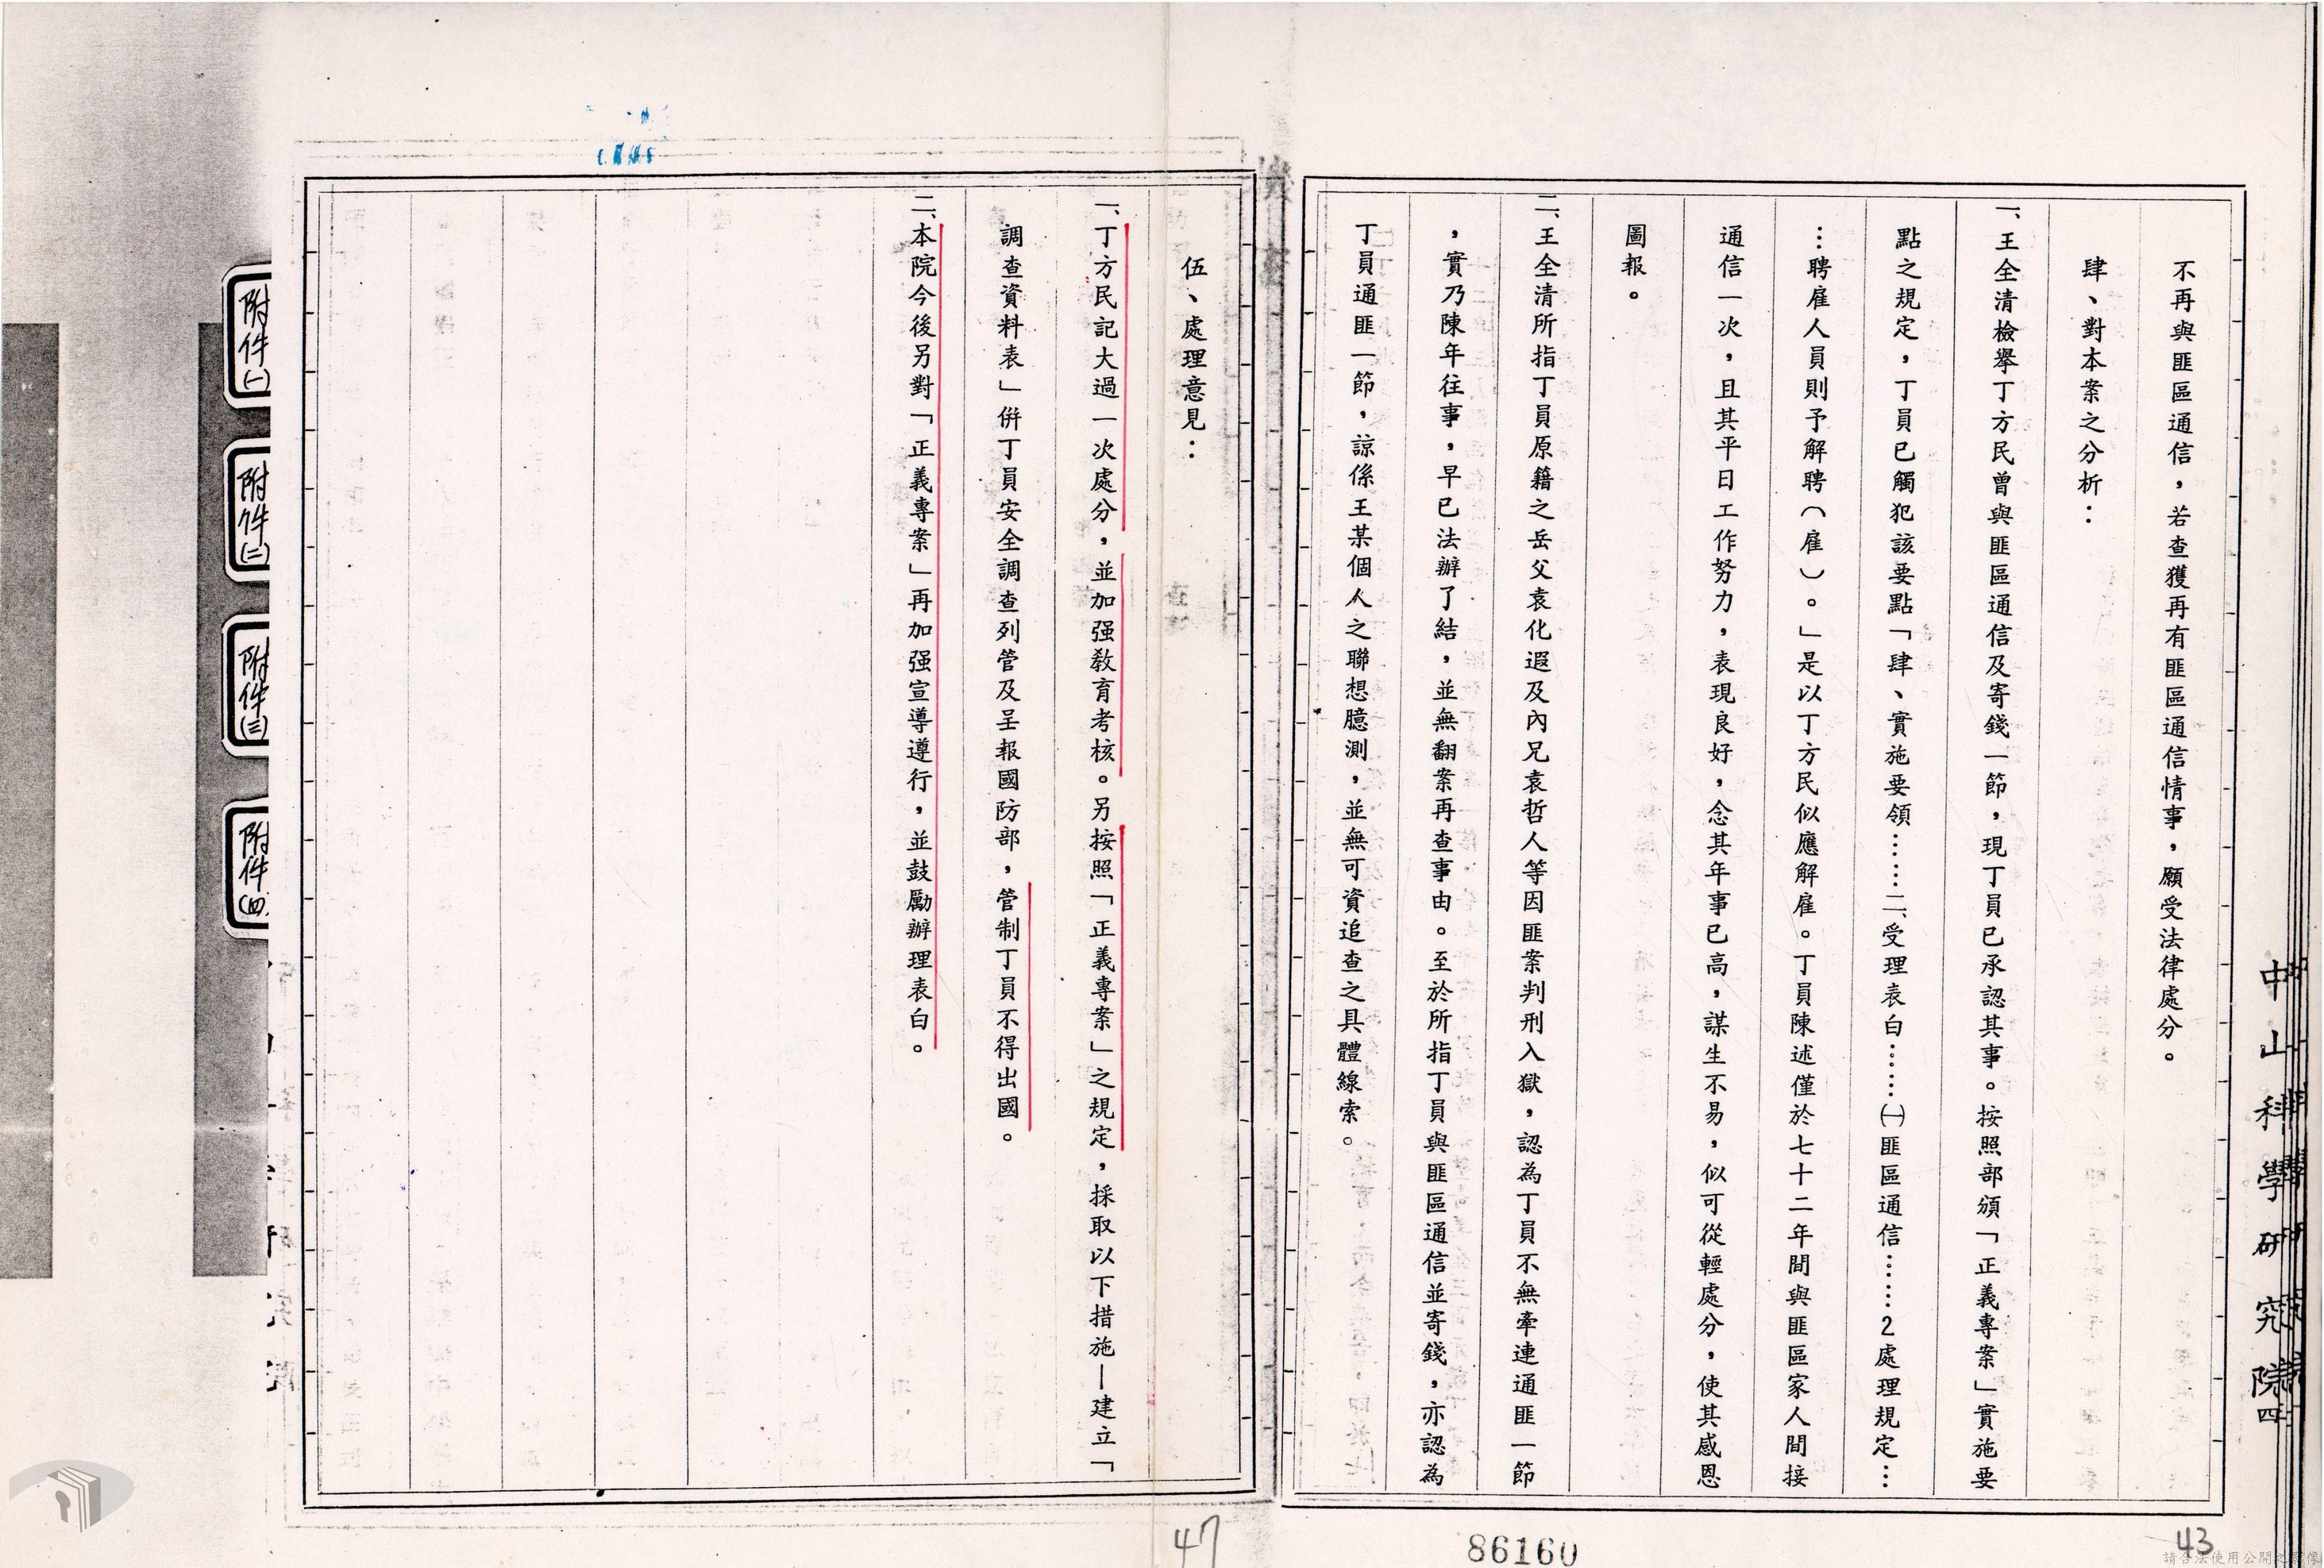 不再與匪區通信，若查獲再有匪區通信情事，願受法律處分。
肆、對本案之分析：
一、王全清檢舉丁方民曾與匪區通信及寄錢一節，現丁員已承認其事。按照部頒「正義專案」實施要
點之規定，丁員已觸犯該要點「肆、實施要領……二、受理表白……㈠匪區通信……2處理規定…
…聘雇人員則予解聘（雇）。」是以丁方民似應解雇。丁員陳述僅於七十二年間與匪區家人間接
通信一次，且其平日工作努力，表現良好，念其年事已高，謀生不易，似可從輕處分，使其感恩
圖報。
二、王全清所指丁員原籍之岳父袁化遐及內兄袁哲人等因匪案判刑入獄，認為丁員不無牽連通匪一節
，實乃陳年往事，早已法辦了結，並無翻案再查事由。至於所指丁員與匪區通信並寄錢，亦認為
丁員通匪一節，諒係王某個人之聯想臆測，並無可資追查之具體線索。
中山科學研究院
四
43
86160
伍、處理意見：
一、丁方民記大過一次處分，並加强教育考核。另按照「正義專案」之規定，採取以下措施—建立「
調查資料表」併丁員安全調查列管及呈報國防部，管制丁員不得出國。
二、本院今後另對「正義專案」再加强宣導遵行，並鼓勵辦理表白。
47
附件(一)
附件(二)
附件(三)
附件(四)